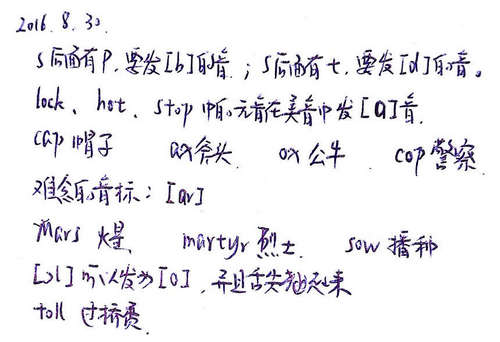 2016.8.30
s后面有p,要发[b]的音;s后面有t,要发[d]的音。
lock、hot、stop中的元音在美音中发[ɑ]音.
cap 帽子 ax 斧头 ox 公牛 cop 警察
难念的音标:[ar]
Mars 火星 martyr 烈士 sow 播种
[ɔl]可以发为[o],并且舌尖翘起来
toll 过桥费